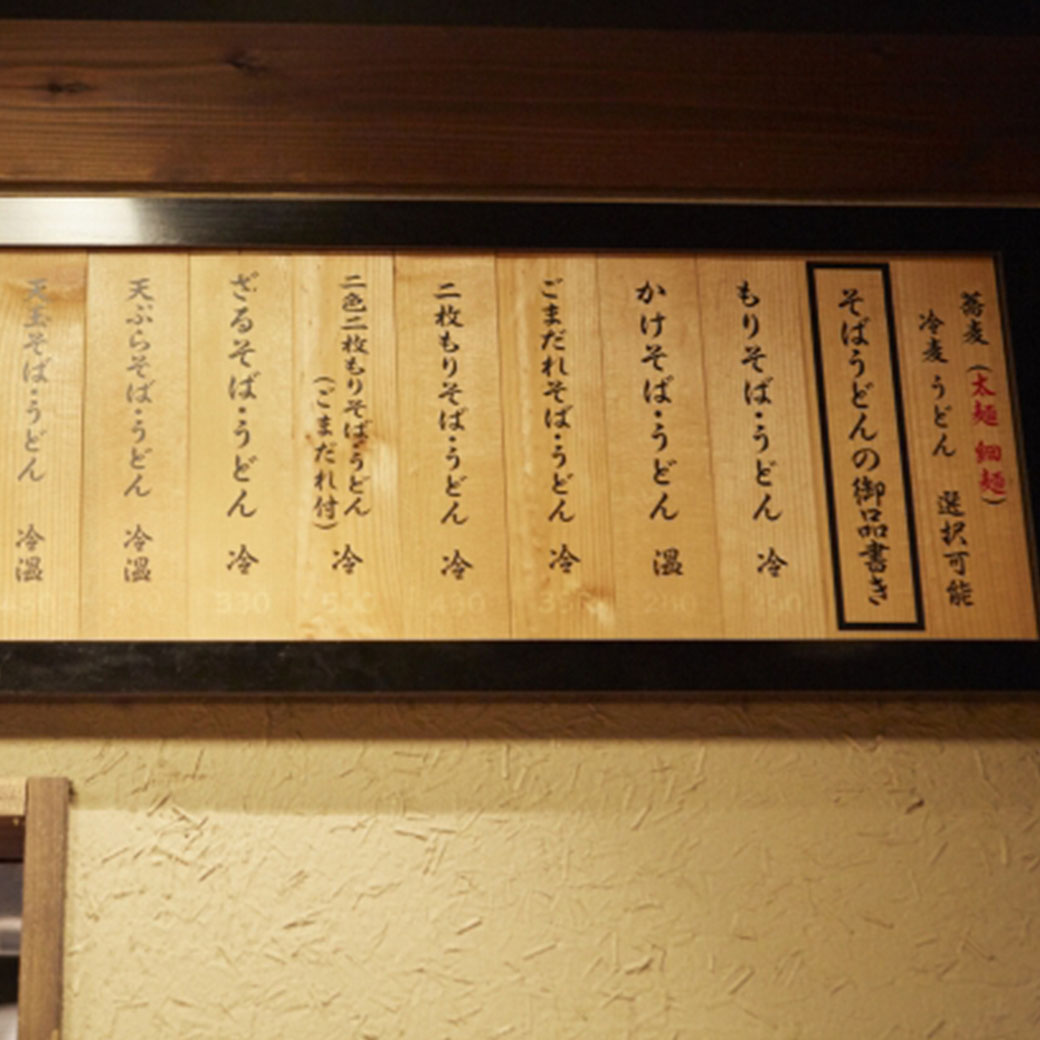 蕎麦(太麺 細麺)
冷麦 うどん 選択可能
そばうどんの御品書き
もりそば・うどん 冷
かけそば・うどん 温
ごまだれそば・うどん 冷
二枚もりそば・うどん 冷
二色二枚もりそば・うどん 冷
(ごまだれ付)
ざるそば・うどん 冷
天ぷらそば・うどん 冷温
天玉そば・うどん 冷温